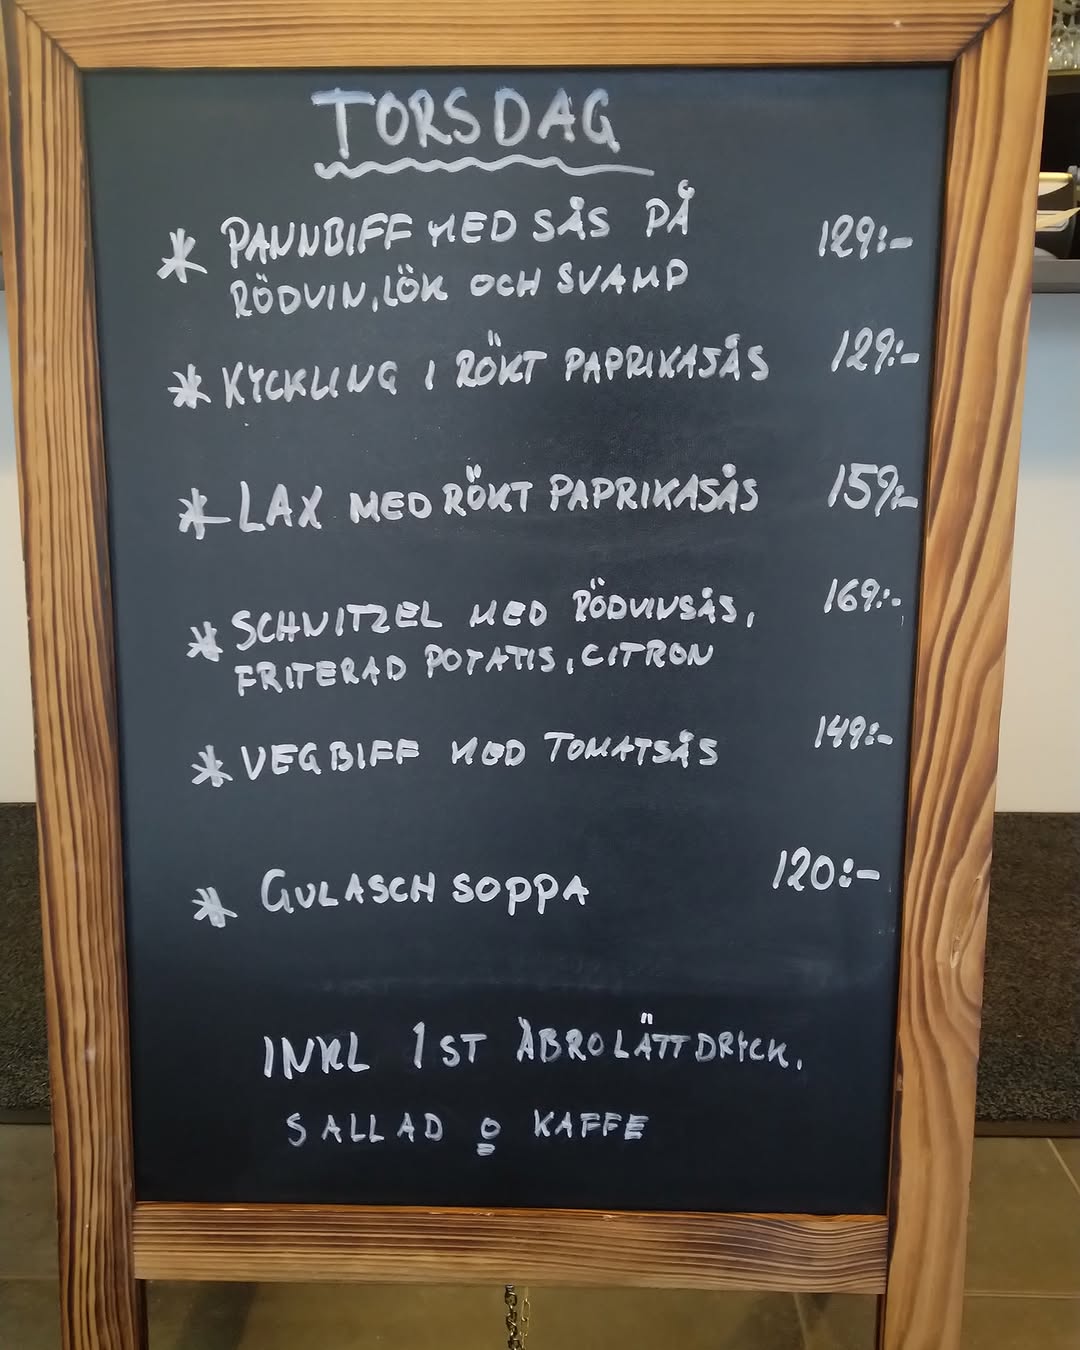 TORSDAG
* PANNBIFF MED SÅS PÅ 129:-
RÖDVIN, LÖK OCH SVAMP
* KYCKLING I RÖKT PAPRIKASÅS 129:-
* LAX MED RÖKT PAPRIKASÅS 159:-
* SCHNITZEL MED RÖDVINSÅS, 169:-
FRITERAD POTATIS, CITRON
* VEGBIFF MED TOMATSÅS 149:-
* GULASCH SOPPA 120:-
INKL 1 ST ÅBRO LÄTTDRYCK,
SALLAD o KAFFE